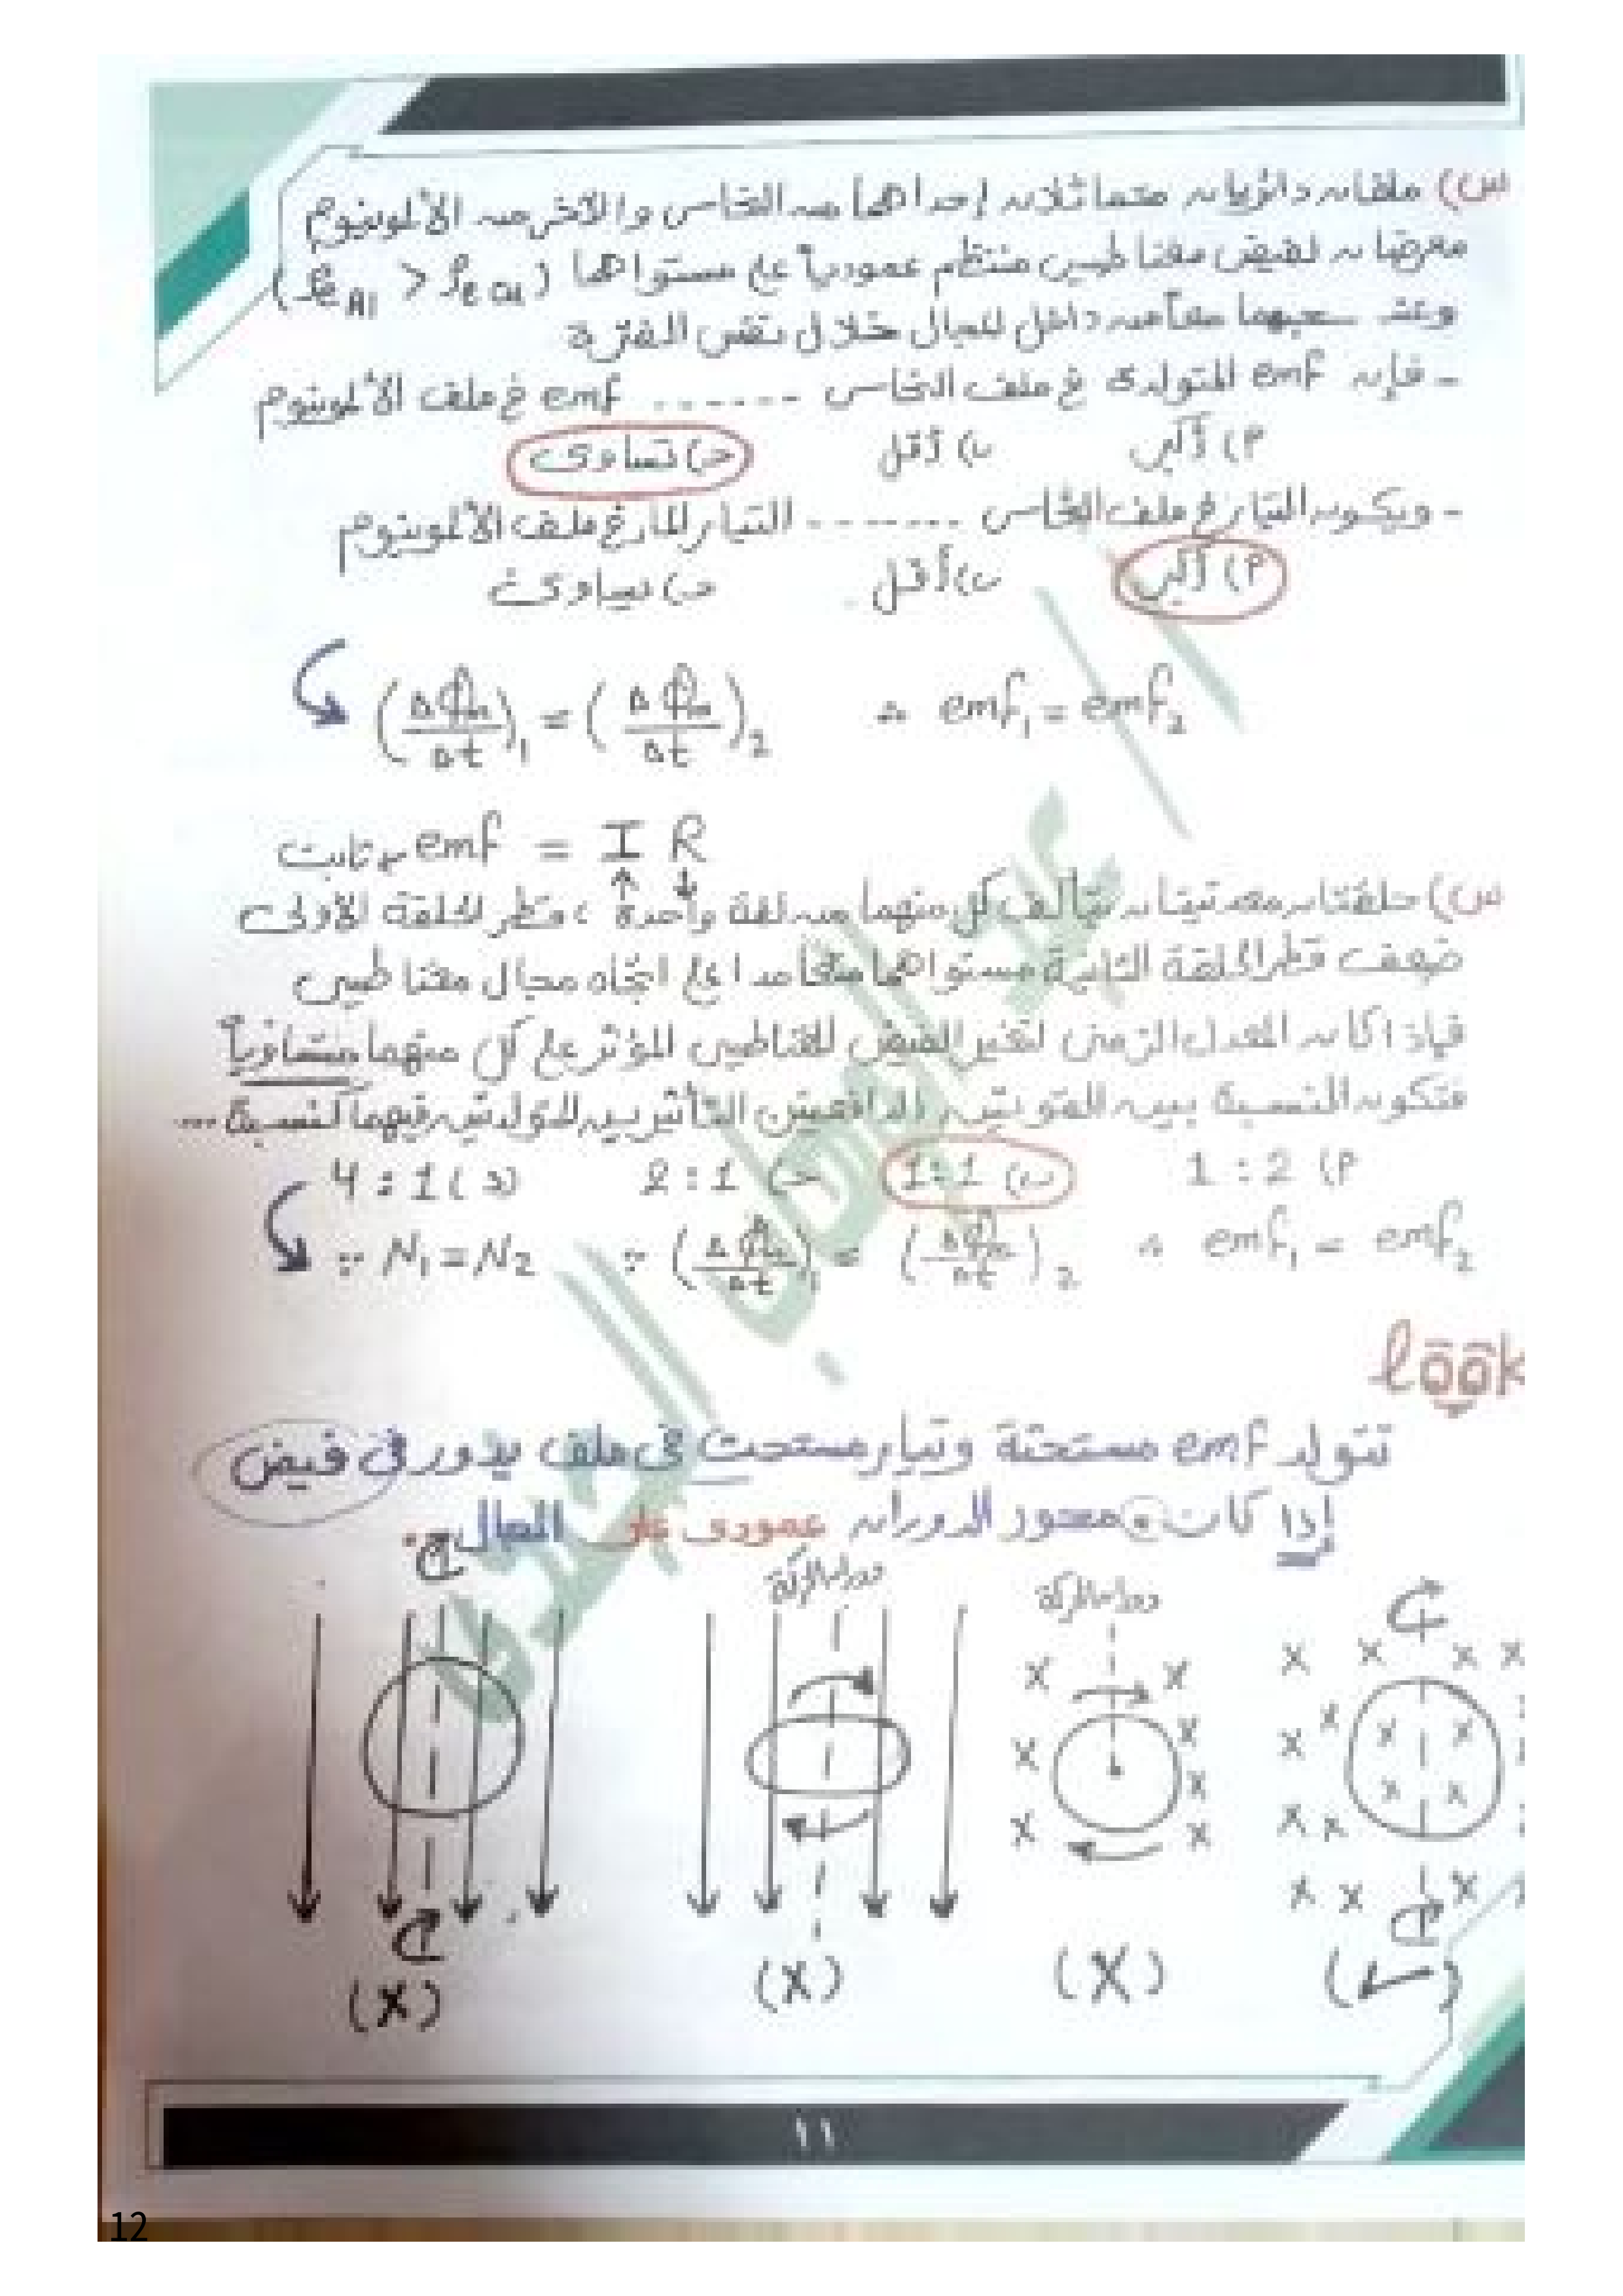 س) ملفان دائريان متماثلان إحداهما من النحاس والآخر من الألومنيوم
معرضان لفيض مغناطيسي منتظم عمودياً على مستواهما (ρe Al > ρe Cu)
وعند سحبهما معاً من داخل المجال خلال نفس الفترة
- فإن emf المتولدة في ملف النحاس ....... emf في ملف الألومنيوم
أ) أكبر ب) أقل جـ) تساوى
- ويكون التيار في ملف النحاس ....... التيار المار في ملف الألومنيوم
أ) أكبر ب) أقل جـ) يساوى
(Δφm/Δt)1 = (Δφm/Δt)2 ∴ emf1 = emf2
ثابت emf = I R
↑ ↓
س) حلقتان معدنيتان تتألف كل منهما من لفة واحدة ، قطر الحلقة الأولى
ضعف قطر الحلقة الثانية مستواهما متعامدا على اتجاه مجال مغناطيسي
فإذا كان المعدل الزمنى لتغير الفيض المغناطيسى المؤثر على كل منهما متساوياً
فتكون النسبة بين القوتين الدافعتين التأثيريتين المتولدتين فيهما كنسبة ...
أ) 1 : 2 ب) 1 : 1 جـ) 2 : 1 د) 4 : 1
∵ N1 = N2 ∵ (Δφm/Δt)1 = (Δφm/Δt)2 ∴ emf1 = emf2
look
تتولد emf مستحثة وتيار مستحث فى ملف يدور فى فيض
إذا كان محور الدوران عمودى على المجال.
x x x x x x
(✓) (X) (X) (X)
١١
12